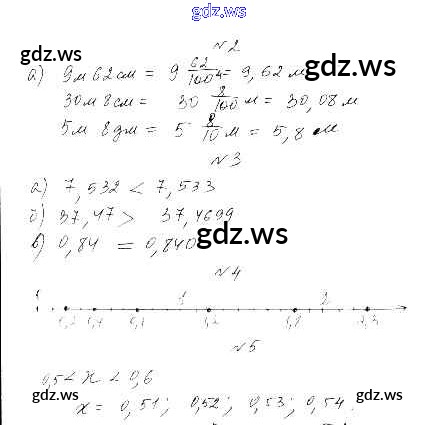 gdz.ws
№2
gdz.ws gdz.ws
а) 9м 62см = 9 62/100 м = 9,62 м
30м 8см = 30 8/100 м = 30,08 м
5м 8дм = 5 8/10 м = 5,8 м
№3
а) 7,532 < 7,533
б) 37,47 > 37,4699
в) 0,84 = 0,840
gdz.ws
№4
1 2
№5
0,5 < x < 0,6
x = 0,51; 0,52; 0,53; 0,54
gdz.ws gdz.ws